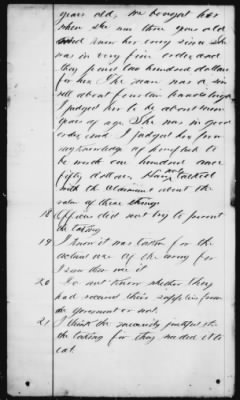 years old, we bought her
when she was three years old
and knew her very since She
was in very fine order and
they paid two hundred dollars
for her. The man was a
about fourteen hands high
I judged her to be about seven
years of age She was in good
order and I judged her from
my knowledge of horseflesh to
be worth one hundred and
fifty dollars, Have not talked
with the Claimant about the
value of these things.
18 Officers did not try to prevent
the taking
19 I know it was taken for the
actual use of the army for
I saw them use it
20 Do not know whether they
had received their supplies from
the government or not.
21 I think the necessity justified
the taking for they needed it to
eat.